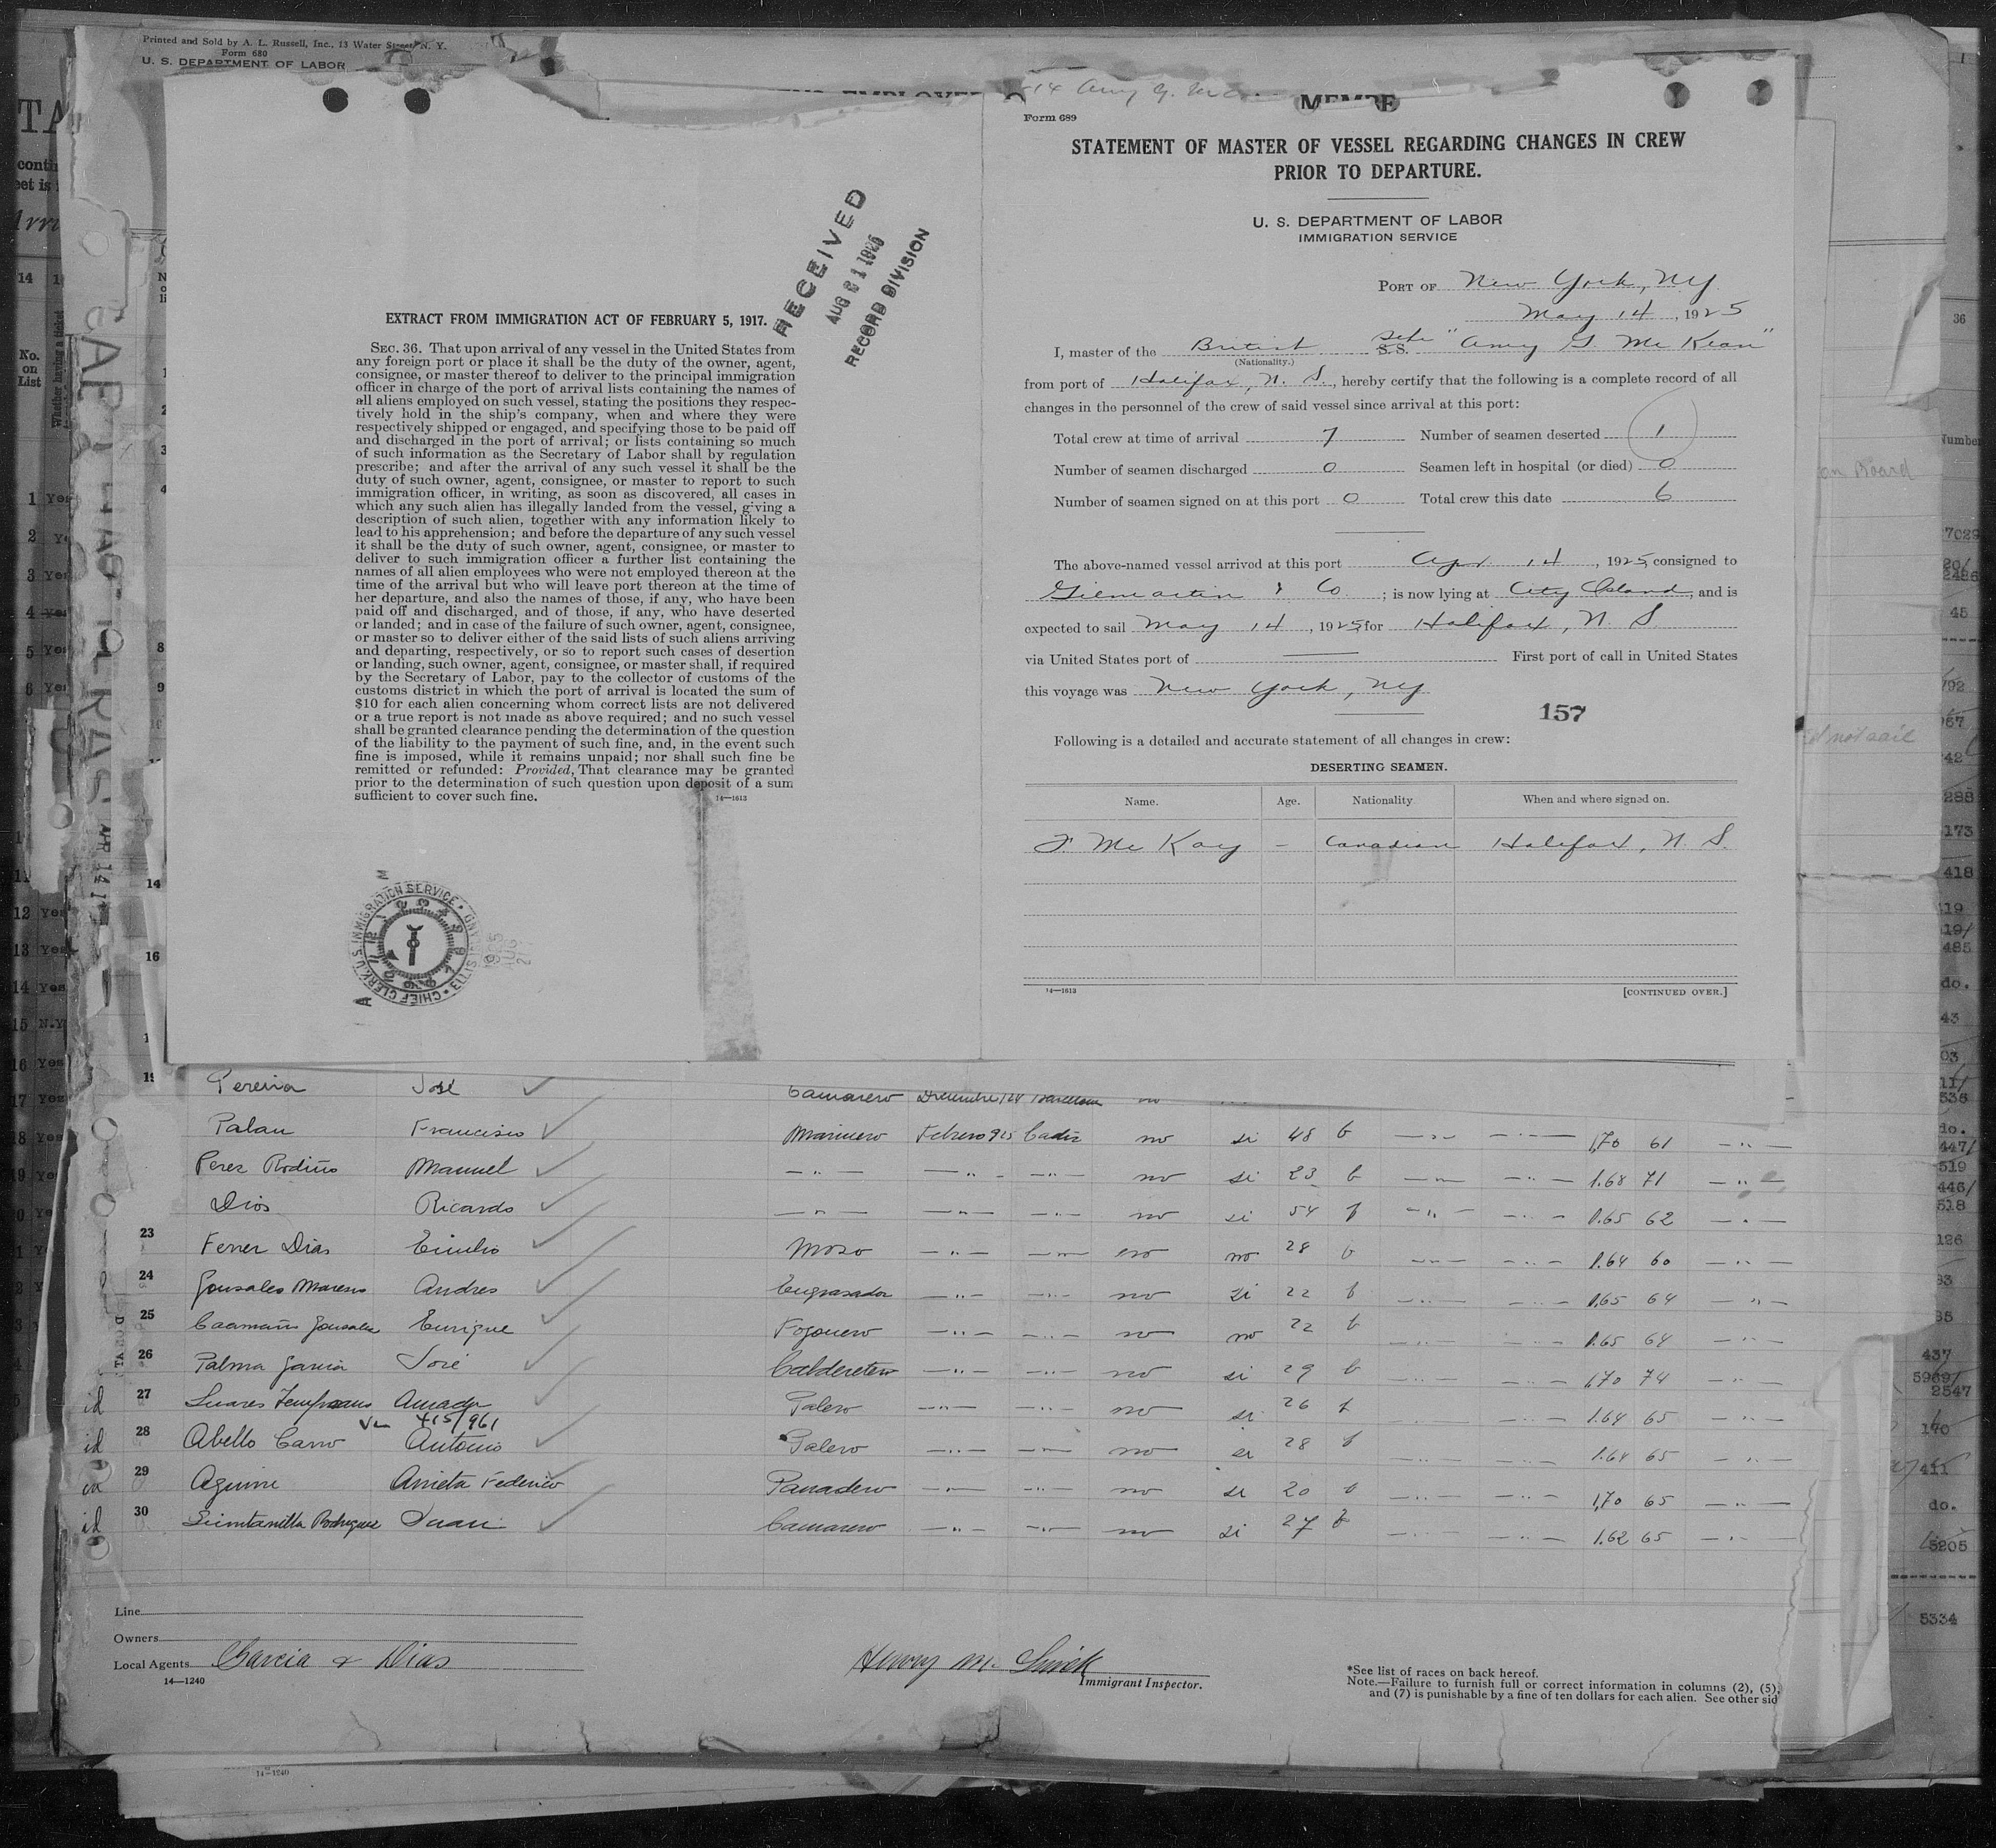 Printed and Sold by A. L. Russell, Inc., 13 Water Street, N. Y.
Form 680
U. S. DEPARTMENT OF LABOR
RECEIVED
AUG 21 1925
RECORD DIVISION
EXTRACT FROM IMMIGRATION ACT OF FEBRUARY 5, 1917.
SEC. 36. That upon arrival of any vessel in the United States from
any foreign port or place it shall be the duty of the owner, agent,
consignee, or master thereof to deliver to the principal immigration
officer in charge of the port of arrival lists containing the names of
all aliens employed on such vessel, stating the positions they respec-
tively hold in the ship's company, when and where they were
respectively shipped or engaged, and specifying those to be paid off
and discharged in the port of arrival; or lists containing so much
of such information as the Secretary of Labor shall by regulation
prescribe; and after the arrival of any such vessel it shall be the
duty of such owner, agent, consignee, or master to report to such
immigration officer, in writing, as soon as discovered, all cases in
which any such alien has illegally landed from the vessel, giving a
description of such alien, together with any information likely to
lead to his apprehension; and before the departure of any such vessel
it shall be the duty of such owner, agent, consignee, or master to
deliver to such immigration officer a further list containing the
names of all alien employees who were not employed thereon at the
time of the arrival but who will leave port thereon at the time of
her departure, and also the names of those, if any, who have been
paid off and discharged, and of those, if any, who have deserted
or landed; and in case of the failure of such owner, agent, consignee,
or master so to deliver either of the said lists of such aliens arriving
and departing, respectively, or so to report such cases of desertion
or landing, such owner, agent, consignee, or master shall, if required
by the Secretary of Labor, pay to the collector of customs of the
customs district in which the port of arrival is located the sum of
$10 for each alien concerning whom correct lists are not delivered
or a true report is not made as above required; and no such vessel
shall be granted clearance pending the determination of the question
of the liability to the payment of such fine, and, in the event such
fine is imposed, while it remains unpaid; nor shall such fine be
remitted or refunded: Provided, That clearance may be granted
prior to the determination of such question upon deposit of a sum
sufficient to cover such fine.
14—1613
CHIEF CLERK, U.S. IMMIGRATION SERVICE
Form 689
STATEMENT OF MASTER OF VESSEL REGARDING CHANGES IN CREW
PRIOR TO DEPARTURE.
U. S. DEPARTMENT OF LABOR
IMMIGRATION SERVICE
PORT OF New York, NY
May 14, 1925
I, master of the British S.S. "Amy G. McKean"
(Nationality.)
from port of Halifax, N. S., hereby certify that the following is a complete record of all
changes in the personnel of the crew of said vessel since arrival at this port:
Total crew at time of arrival 7 Number of seamen deserted 1
Number of seamen discharged 0 Seamen left in hospital (or died) 0
Number of seamen signed on at this port 0 Total crew this date 6
The above-named vessel arrived at this port Apr 14, 1925, consigned to
Gilmartin & Co.; is now lying at City Island, and is
expected to sail May 14, 1925, for Halifax, N. S.
via United States port of — First port of call in United States
this voyage was New York, NY
157
Following is a detailed and accurate statement of all changes in crew:
DESERTING SEAMEN.
Name. Age. Nationality When and where signed on.
F. McKay - Canadian Halifax, N. S.
14—1613 [CONTINUED OVER.]
Pereira José Camarero Diciembre 124 Barcelona no
Palau Francisco Marinero Febrero 925 Cadiz no si 48 b 1,70 61
Perez Rodiño Manuel no si 23 b 1.68 71
Dios Ricardo no si 54 b 1.65 62
23 Ferrer Dias Emilio Mozo no no 28 b 1.64 60
24 Gonsales Moreno Andres Engrasador no si 22 b 1.65 64
25 Caamaño Gonsales Enrique Fogonero no no 22 b 1.65 64
26 Palma Garcia José Calderetero no si 29 b 1.70 74
id 27 Suares Amador Palero no si 26 b 1.64 65
415/961
id 28 Abello Carro Antonio Palero no si 28 b 1.64 65
29 Aguirre Arrieta Federico Panadero no si 20 b 1,70 65
id 30 Quintanilla Rodriguez Juan Camarero no si 27 b 1.62 65
Line
Owners
Local Agents Garcia & Dias
14—1240
Immigrant Inspector.
*See list of races on back hereof.
Note.—Failure to furnish full or correct information in columns (2), (5),
and (7) is punishable by a fine of ten dollars for each alien. See other sid
14—1240